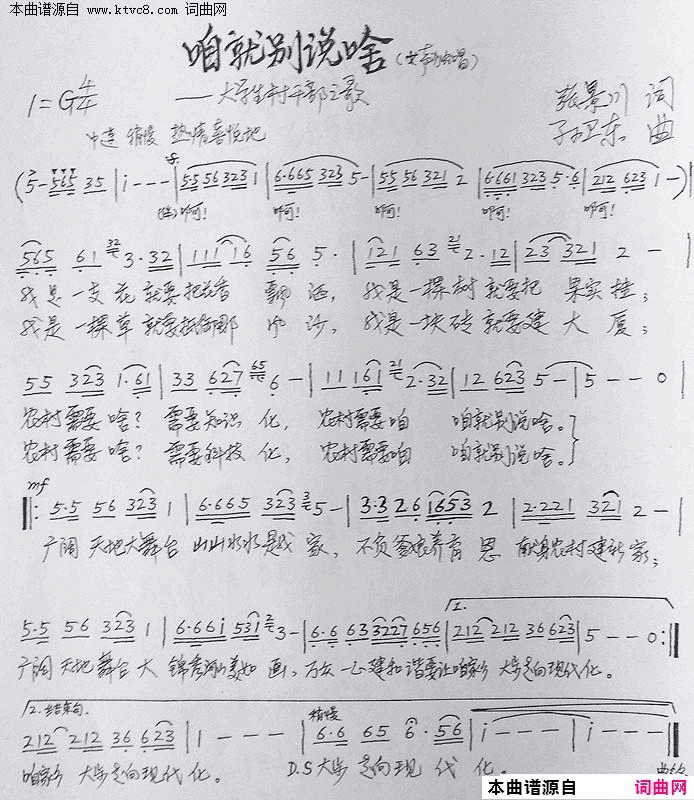 本曲谱源自
www.ktvc8.com 词曲网
咱就别说啥(女声独唱)
1=G 4/4 ——大学生村干部之歌 张景川 词
中速 稍慢 热情喜悦地 孙卫东 曲
(5- 565 35 | i--- | 55 56 323 1 | 6·665 323 5- | 55 56 321 2 | 6·661 323 5·6 | 212 623 1-)
(伴)啊! 啊! 啊! 啊! 啊!
565 61 3·32 | 111 16 56 5· | 121 63 2·12 | 23 321 2 - |
我是一支花就要把香 飘洒, 我是一棵树就要把 果实挂;
我是一棵草就要抵御那 风沙, 我是一块砖就要建 大厦;
55 323 1·61 | 33 627 6- | 11 161 2·32 | 12 623 5- | 5--0 |
农村需要啥? 需要知识 化, 农村需要咱 咱就别说啥。
农村需要啥? 需要科技 化, 农村需要咱 咱就别说啥。
mf
5·5 56 323 1 | 6·665 323 5- | 3·3 26 1653 2 | 2·221 321 2- |
广阔天地大舞台 山山水水是我 家, 不负爹娘养育 恩 献身农村建新家;
1.
5·5 56 323 1 | 6·66i 53i 3- | 6·6 63 3227 656 | 212 212 36 623 | 5--0 :|
广阔天地舞台大 锦秀河山美如 画, 万众一心建和谐要让咱家乡 大步走向现代化。
2.结束句. 稍慢
212 212 36 623 | 1 - - - | 6·6 65 6·56 | i--- | i--- |
咱家乡 大步走向现代化。 D.S大步走向现 代 化。
本曲谱源自 词曲网